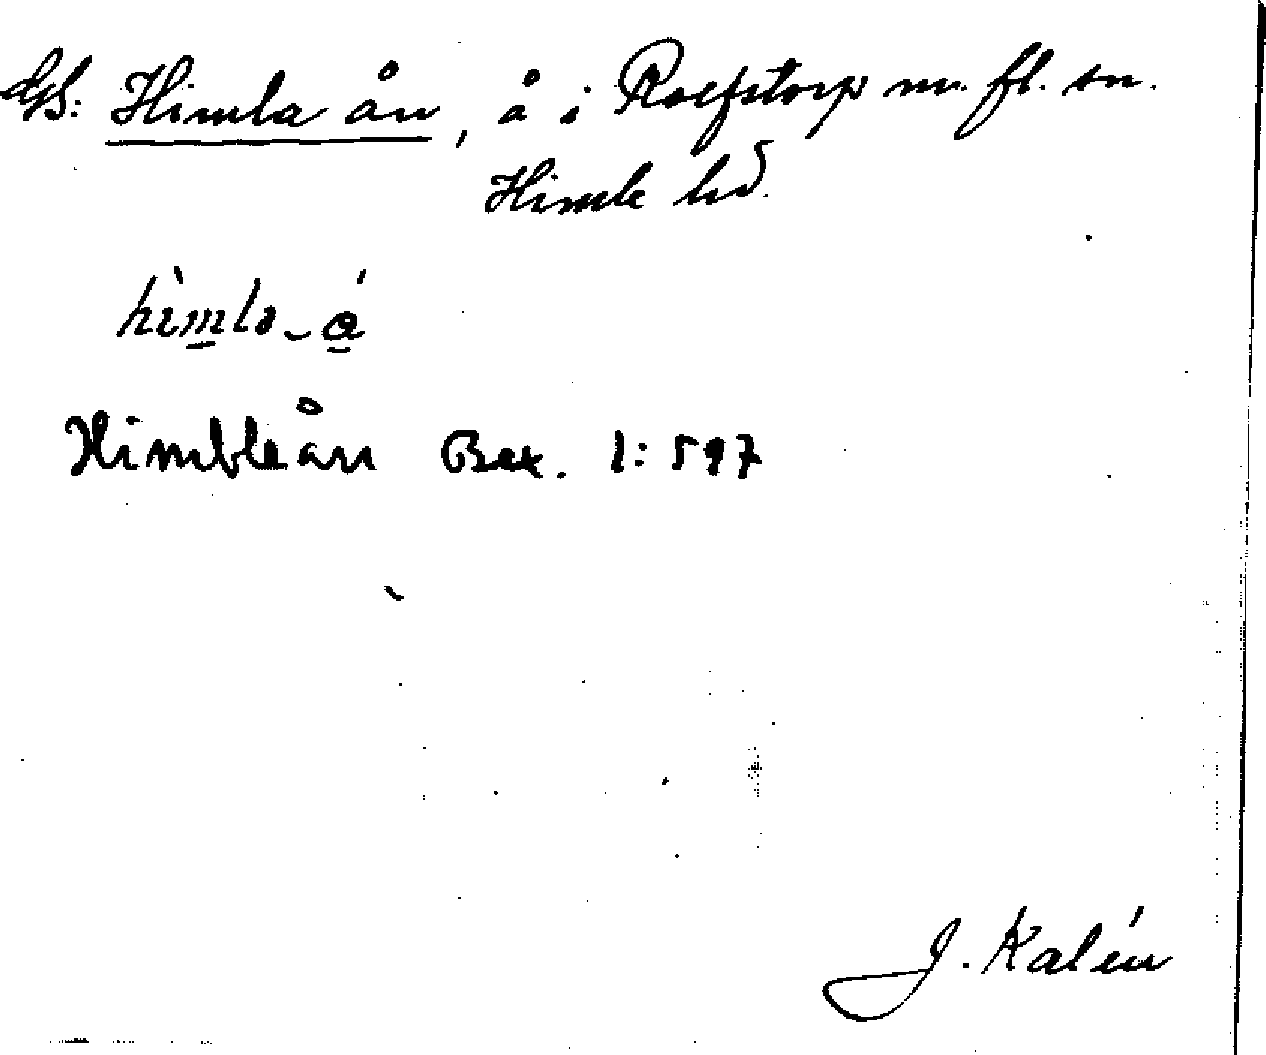 Himla ån, å i Rolfstorp m. fl. sn.
Himle hd.
himla-å
Himbleån Bex. 1:597
J. Kalén